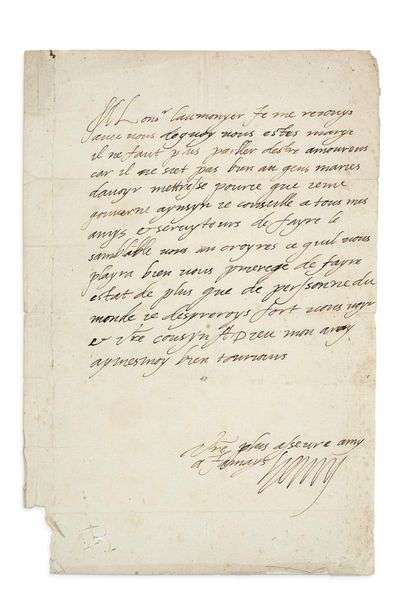 Monsr Laumonyer Je me resouys
avec vous dequoy vous estes marye
il ne faut plus parler destre amoureus
car il ne siet pas bien au gens maries
davoyr metresse pource que je me
gouverne aynsyn je conseille a tous mes
amys & servytours de fayre le
samblable vous an croyres ce quil vous
playra bien vous pryereje de fayre
estat de plus que de personne du
monde je desyreroys fort vous voyr
& vre cousyn A Dieu mon amy
aymesmoy bien tourious
Vre plus aseure amy
a Jamays Henry